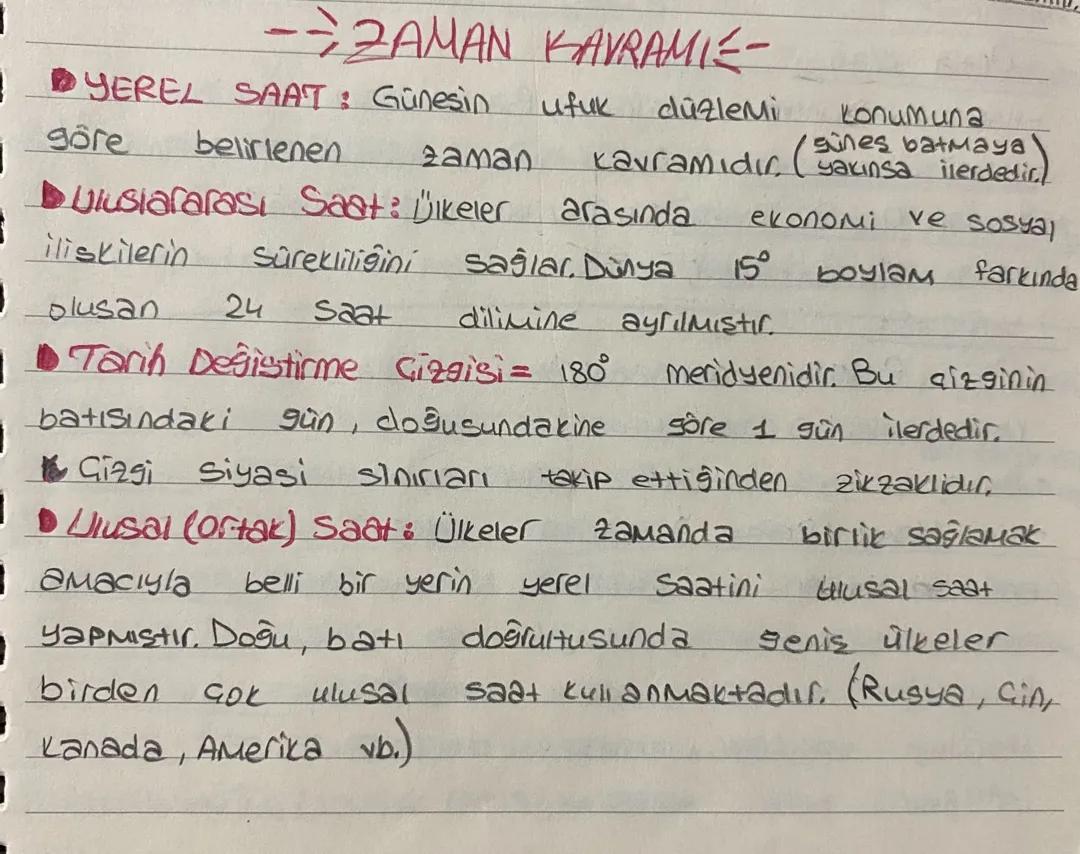 --> ZAMAN KAVRAMI <--
YEREL SAAT : Günesin ufuk düzlemi konumuna
göre belirlenen zaman kavramıdır. (günes batmaya yakınsa ilerdedir.)
Uluslararası Saat : Ülkeler arasında ekonomi ve sosyal
iliskilerin sürekliliğini sağlar. Dünya 15° boylam farkında
olusan 24 saat dilimine ayrılmıstır.
Tarih Değistirme Çizgisi = 180° meridyenidir. Bu çizginin
batısındaki gün, doğusundakine göre 1 gün ilerdedir.
Çizgi siyasi sınırları takip ettiğinden zikzaklıdır.
Ulusal (ortak) Saat : Ülkeler zamanda birlik sağlamak
amacıyla belli bir yerin yerel saatini ulusal saat
yapmıstır. Doğu, batı doğrultusunda genis ülkeler
birden çok ulusal saat kullanmaktadır. (Rusya, Çin,
Kanada, Amerika vb.)